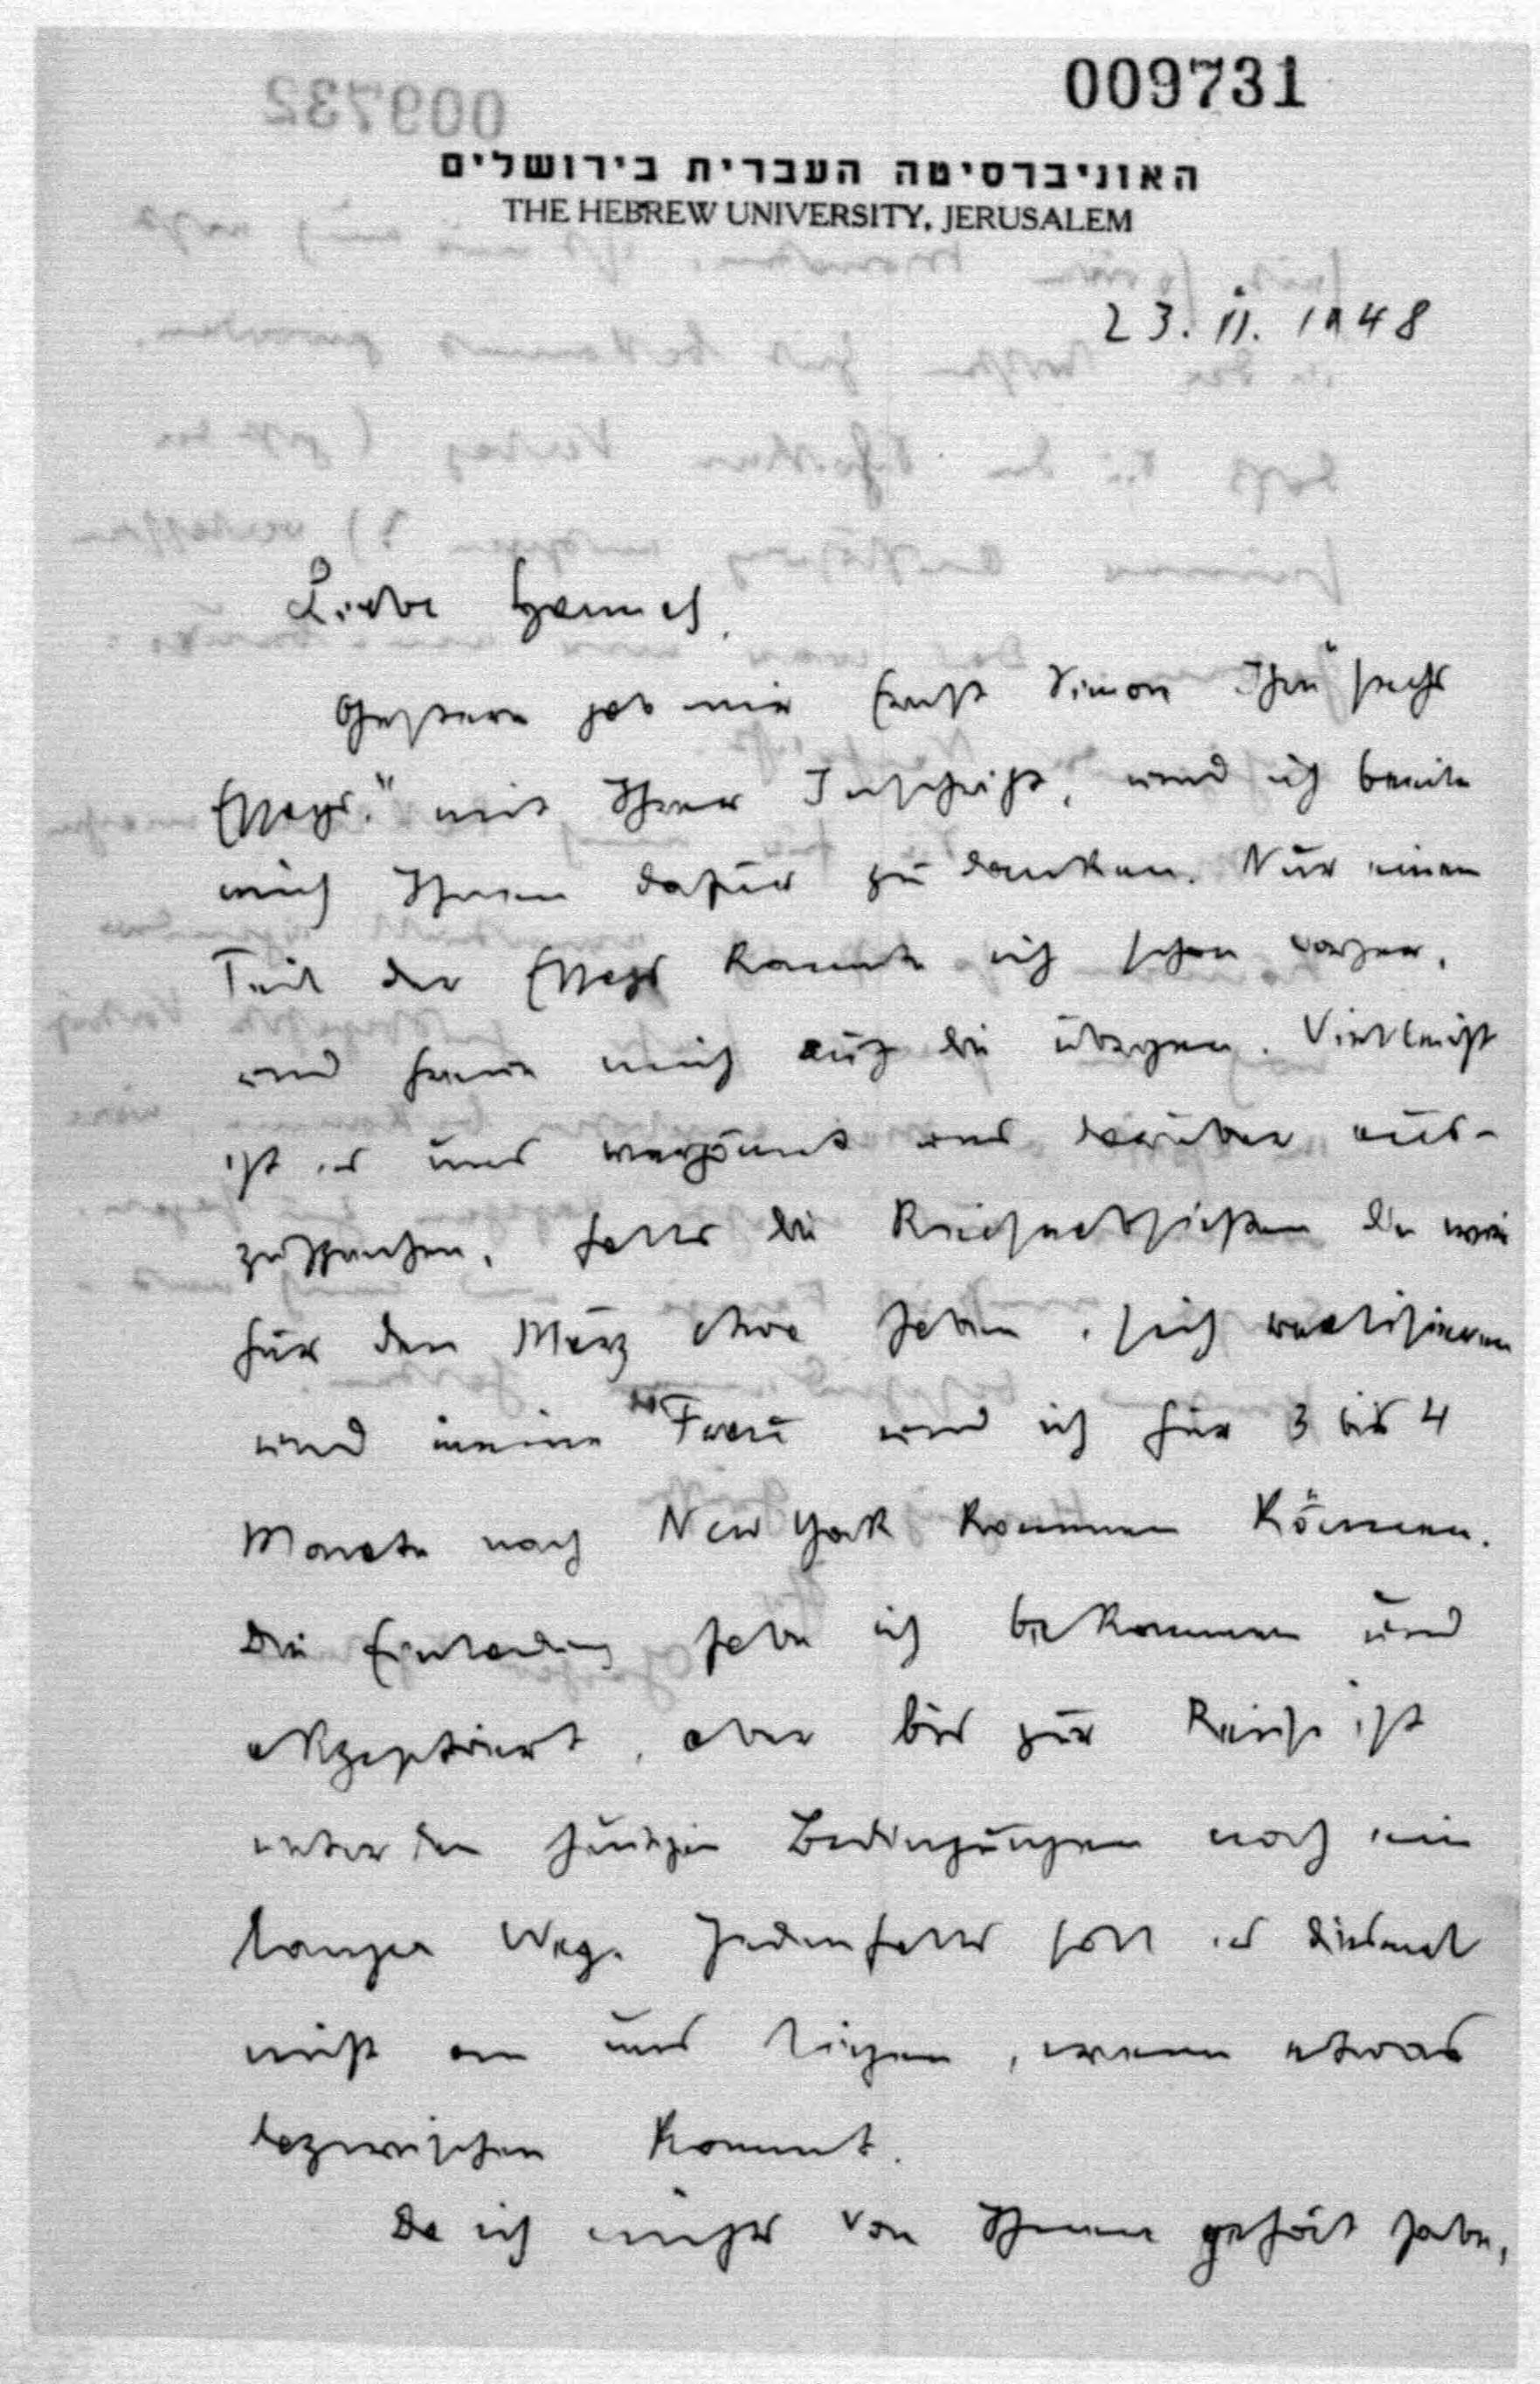 009731
האוניברסיטה העברית בירושלים
THE HEBREW UNIVERSITY, JERUSALEM
23. II. 1948
Liebe Hannah,
Gestern gab mir Ernst Simon Ihre "sechs
Essays" mit Ihrer Inschrift, und ich beeile
mich Ihnen dafür zu danken. Nur einen
Teil der Essays kannte ich schon vorher,
und freue mich auf die übrigen. Vielleicht
ist es uns vergönnt uns darüber aus-
zusprechen, falls die Reiseabsichten die wir
für den März etwa haben, sich realisieren
und meine Frau und ich für 3 bis 4
Monate nach New York kommen können.
Die Einladung habe ich bekommen und
akzeptiert, aber bis zur Reise ist
unter den heutigen Bedingungen noch ein
langer Weg. Jedenfalls soll es diesmal
nicht an uns liegen, wenn etwas
dazwischen kommt.
Da ich nichts von Ihnen gehört habe,